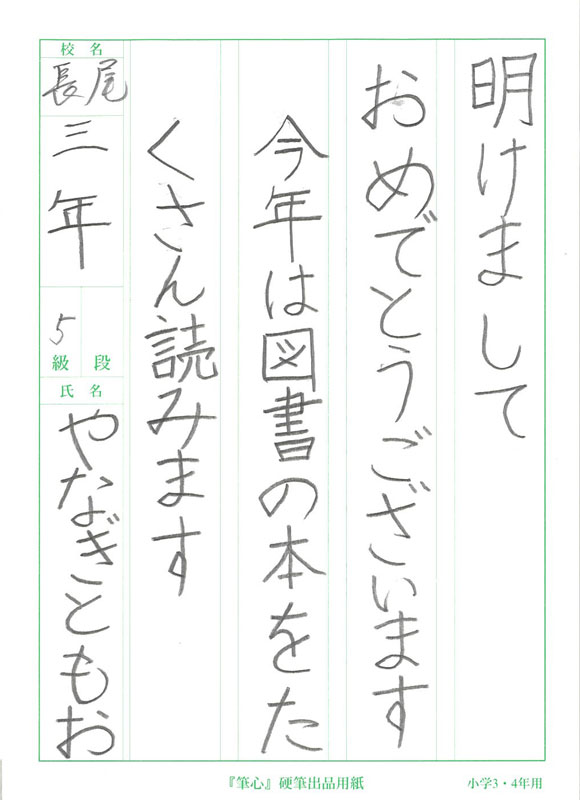 明けまして
おめでとうございます
今年は図書の本をた
くさん読みます
校名
長尾
三年
5
級 段
氏名
やなぎともお
『筆心』硬筆出品用紙
小学3・4年用